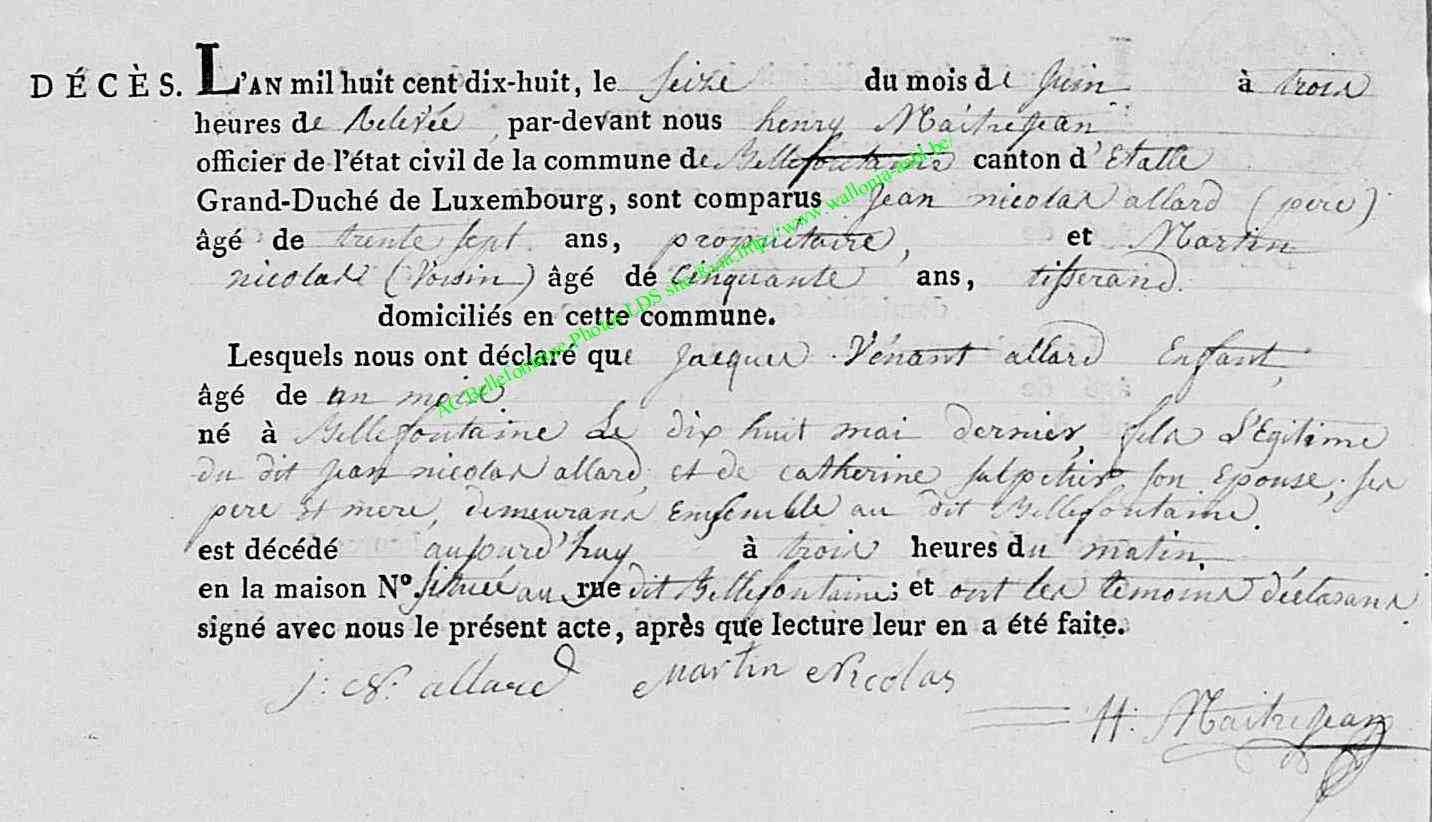 DÉCÈS. L'AN mil huit cent dix-huit, le seize du mois de Juin à trois
heures de Relevée par-devant nous henry Maitrejean
officier de l'état civil de la commune de Bellefontaine canton d'Etalle
Grand-Duché de Luxembourg, sont comparus Jean nicolas allard (pere)
âgé de trente sept ans, propriétaire, et Martin
nicolas (Voisin) âgé de Cinquante ans, tisserand.
domiciliés en cette commune.
Lesquels nous ont déclaré que Jacques Vénant allard Enfant,
âgé de un mois
né à Bellefontaine Le dix huit mai dernier, fils L'Egitime
du dit jean nicolas allard, et de catherine son Epouse; ses
pere et mere, demeurans Ensemble au dit Bellefontaine.
est décédé aujourd'huy à trois heures du matin,
en la maison N° située au rue dit Bellefontaine; et ont les temoins déclarans
signé avec nous le présent acte, après que lecture leur en a été faite.
j: N: allard Martin Nicolas
H: Maitrejean
AC Bellefontaine Photos LDS http://www.wallonia-asbl.be/